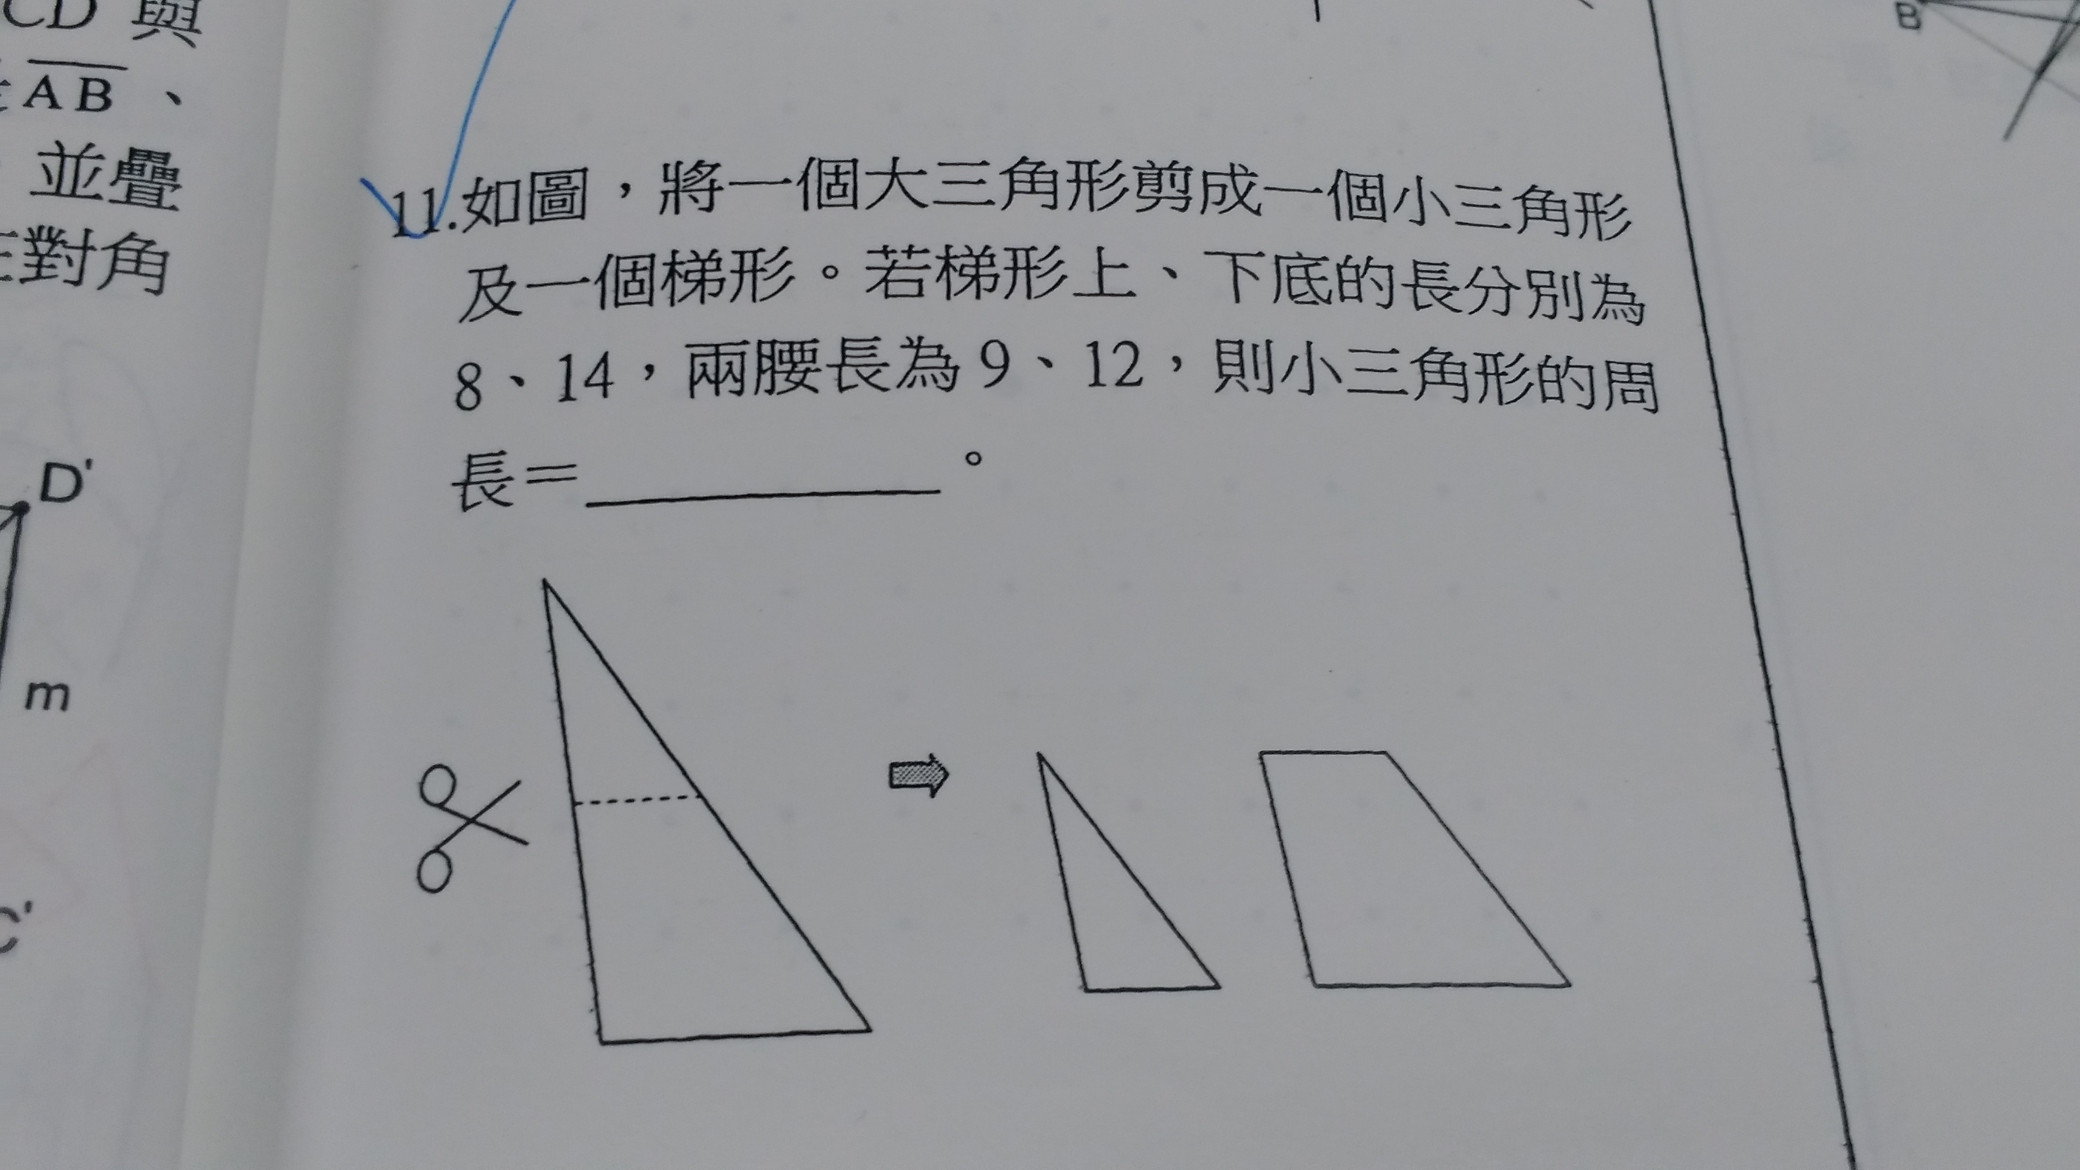 CD 與
AB、
並疊
對角
D'
m
C'
11.如圖,將一個大三角形剪成一個小三角形
及一個梯形。若梯形上、下底的長分別為
8、14,兩腰長為9、12,則小三角形的周
長=__________。
B